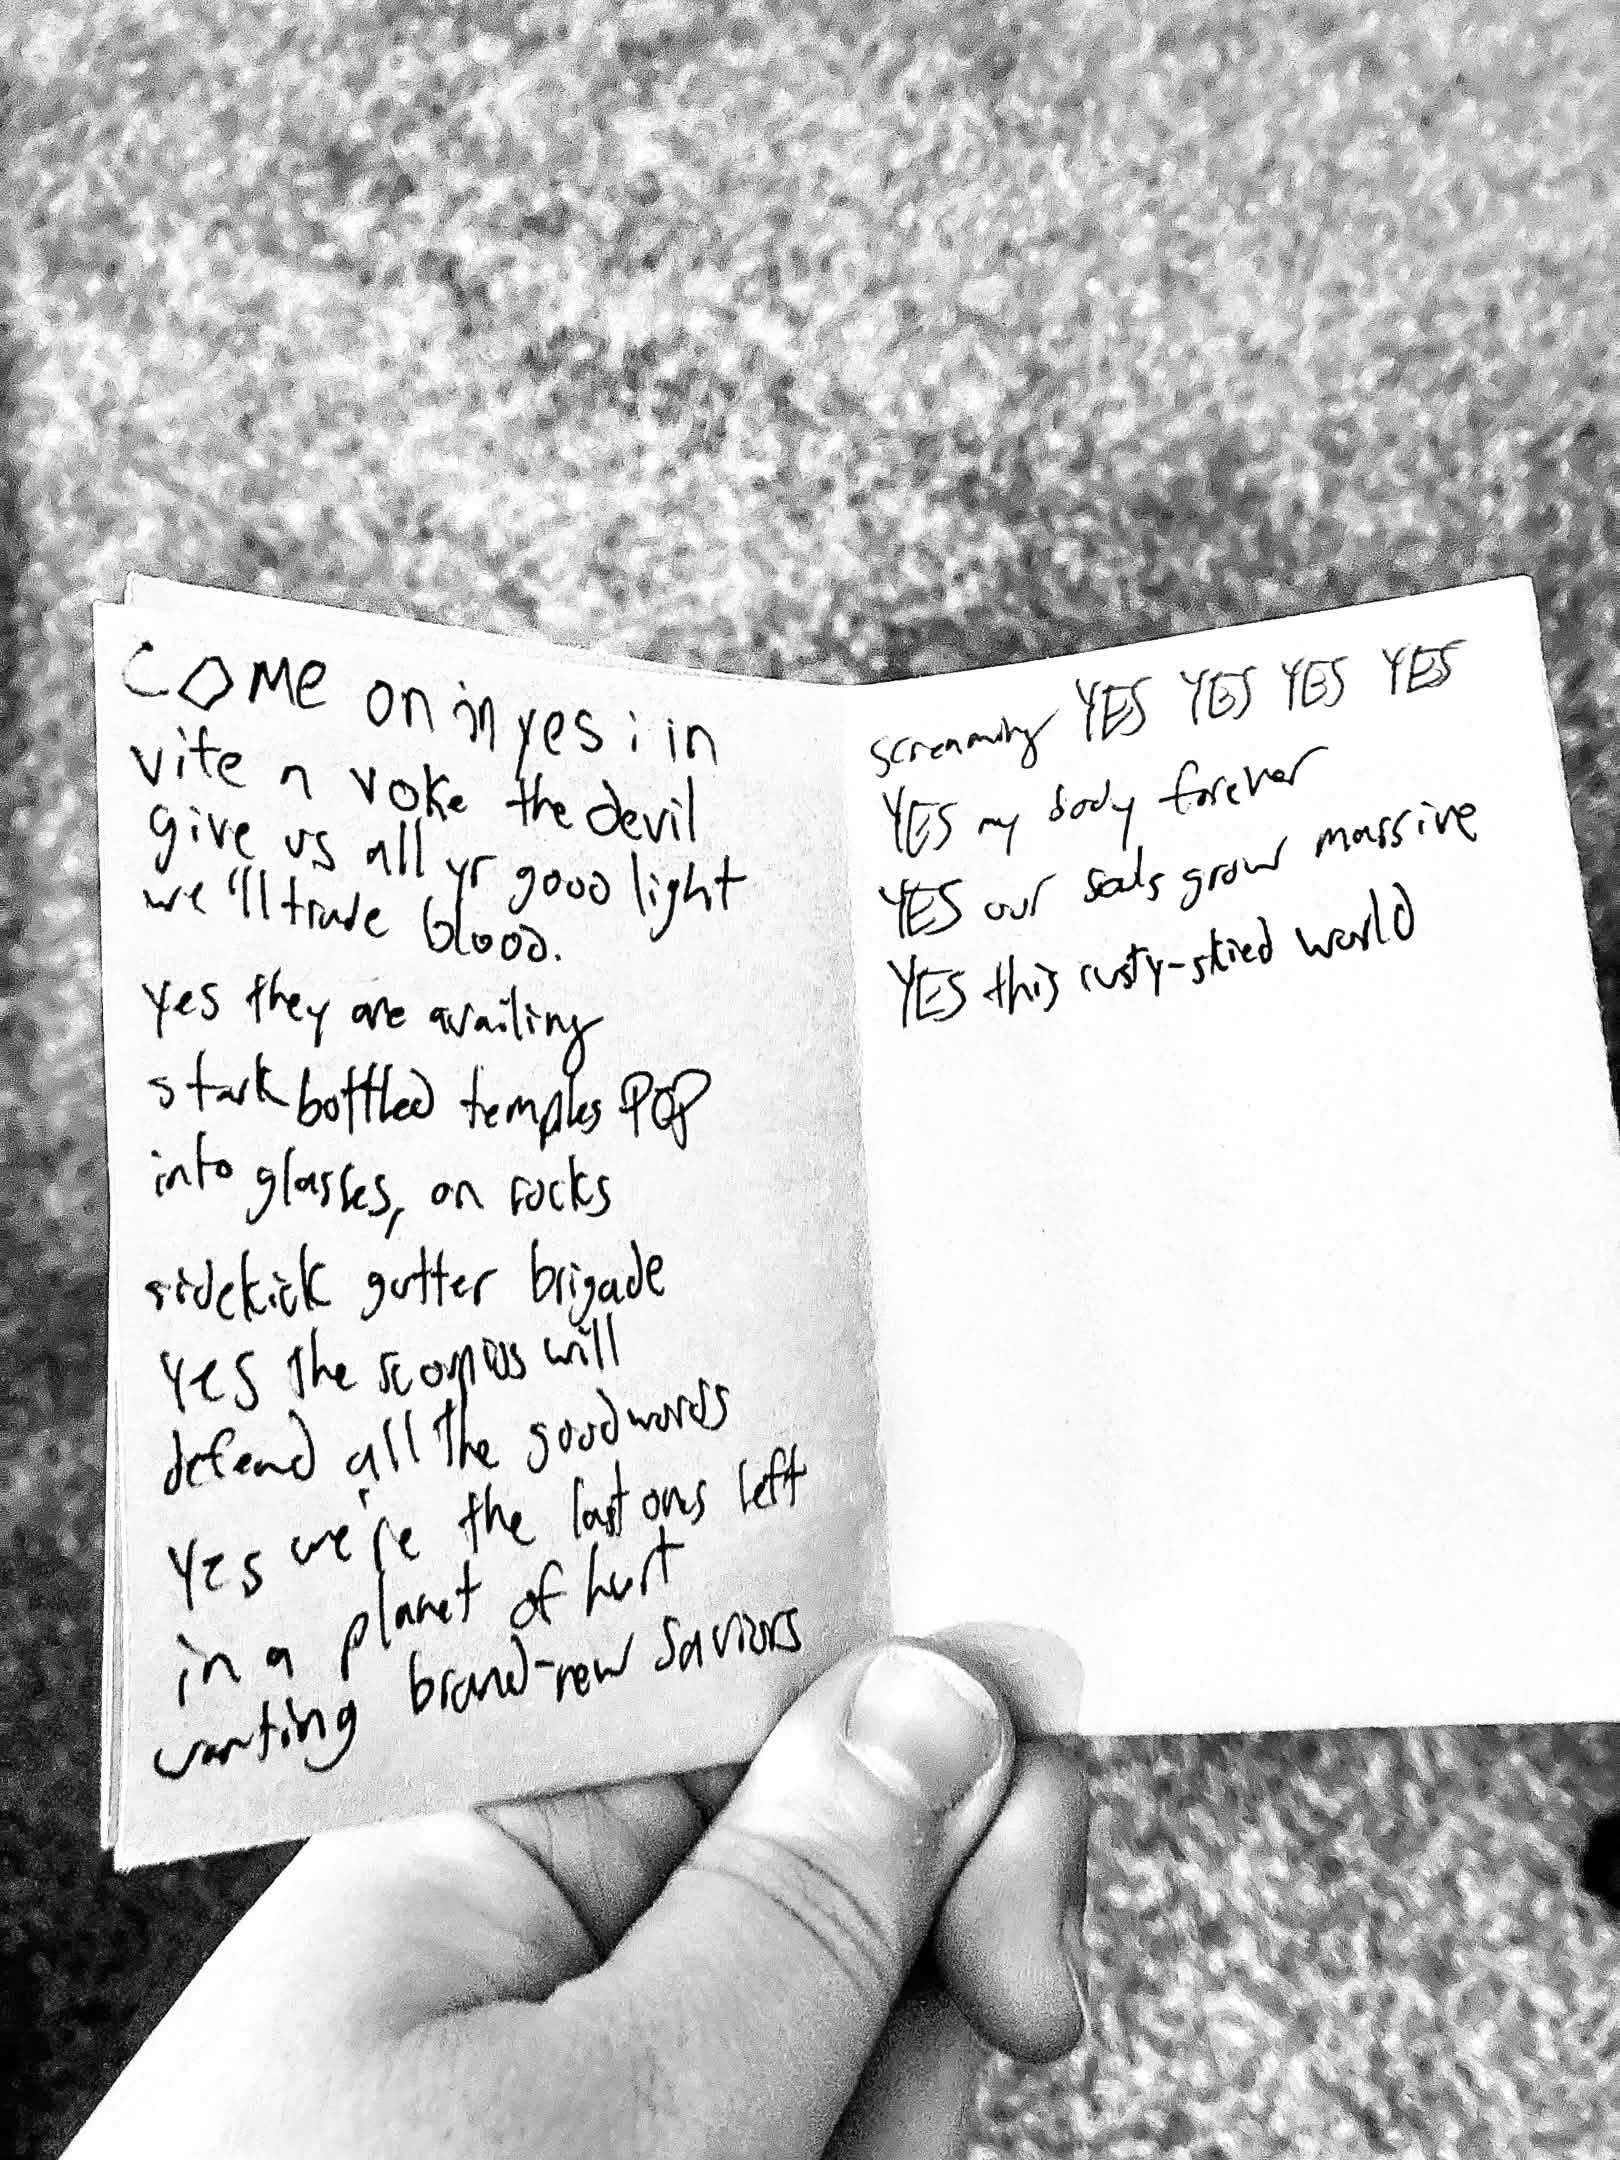 COME on in yes i in
vite n voke the devil
give us all yr good light
we'll trade blood.
yes they are availing
stark bottled temples POP
into glasses, on rocks
sidekick gutter brigade
yes the scorpios will
defend all the good words
yes we're the last ones left
in a planet of hurt
wanting brand-new saviors
screaming YES YES YES YES
YES my body forever
YES our souls grow massive
YES this rusty-skied world